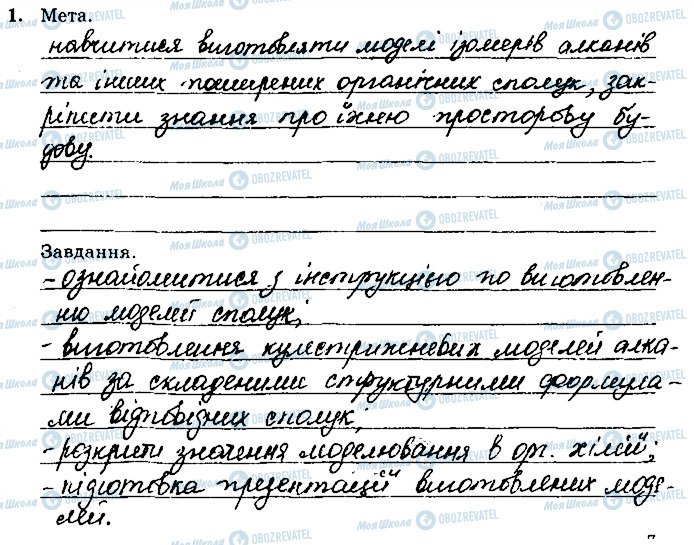 1. Мета.
навчитися виготовляти моделі ізомерів алканів
та інших поширених органічних сполук, зак-
ріпити знання про їхню просторову бу-
дову.
Завдання.
- ознайомитися з інструкцією по виготовлен-
ню моделей сполук;
- виготовлення кулестрижневих моделей алка-
нів за складеними структурними формула-
ми відповідних сполук;
- розкрити значення моделювання в орг. хімії;
- підготовка презентації виготовлених моде-
лей.
7